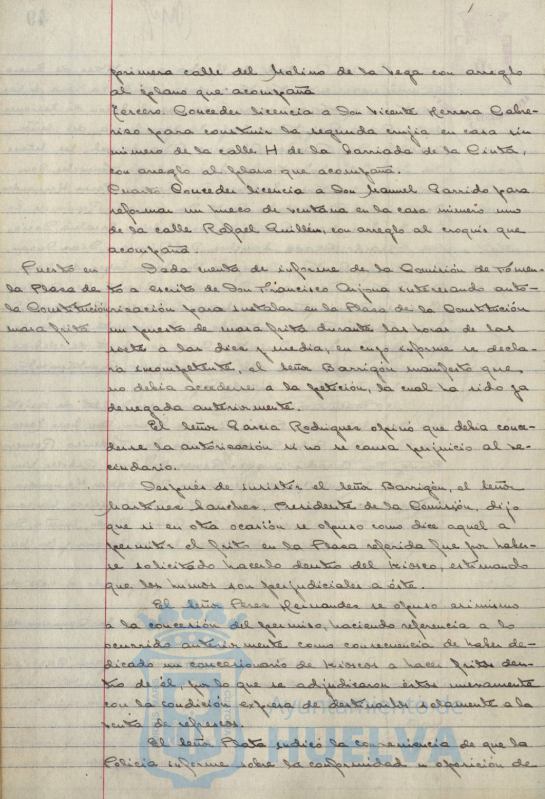 primera calle del Molino de la Vega con arreglo
al plano que acompaña
Tercero. Conceder licencia a Don Vicente Herrera Cabre-
rizo para construir la segunda crujía en casa sin
número de la calle H de la barriada de la Cinta,
con arreglo al plano que acompaña.
Cuarto Conceder licencia a Don Manuel Garrido para
reformar un hueco de ventana en la casa número uno
de la calle Rafael Guillén, con arreglo al croquis que
acompaña.
Puesto en
la Plaza de
la Constitución
masa frita
Dada cuenta de informe de la Comisión de Fomen-
to a escrito de Don Francisco Arjona interesando auto-
rización para instalar en la Plaza de la Constitución
un puesto de masa frita durante las horas de las
siete a las diez y media, en cuyo informe se decla-
ra incompetente, el Señor Barrigón manifestó que
no debía accederse a la petición, la cual ha sido ya
denegada anteriormente.
El Señor García Rodriguez opinó que debía conce-
derse la autorización si no se causa perjuicio al ve-
cindario.
Después de insistir el Señor Barrigón, el Señor
Martinez Sanchez, Presidente de la Comisión, dijo
que si en otra ocasión se opuso como dice aquel a
permitir el frito en la Plaza referida fue por haber-
se solicitado hacerlo dentro del kiosco, estimando
que los humos son perjudiciales a éste.
El Señor Perez Hernandez se opuso asimismo
a la concesión del permiso, haciendo referencia a lo
ocurrido anteriormente como consecuencia de haber de-
dicado un concesionario de kioscos a hacer fritos den-
tro de él, por lo que se adjudicaron éstos nuevamente
con la condición expresa de destinarlos solamente a la
venta de refrescos.
El Señor Plata indicó la conveniencia de que la
Policía informe sobre la conformidad u oposición de
Ayuntamiento de
HUELVA